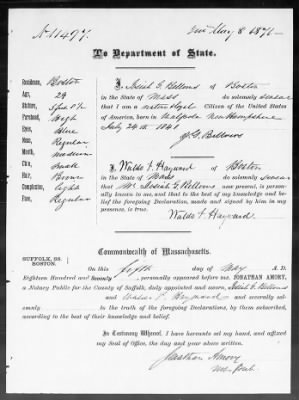 No 11497. Iss May 8 1871
To Department of State.
Residence, Boston
Age, 29
Stature,
Forehead, High
Eyes, Blue
Nose, Regular
Mouth, medium
Chin, Small
Hair, Brown
Complexion, light
Face, Regular
I, Josiah G. Bellows of Boston
in the State of Mass do solemnly swear
that I am a natural born Citizen of the United States
of America, born in Walpole New Hampshire
July 24th 1841
J. G. Bellows
I, Waldo F. Hayward of Boston
in the State of Mass do solemnly swear
that Mr Josiah G. Bellows now present, is personally
known to me, and that to the best of my knowledge and belief
the foregoing Declaration, made and signed by him in my
presence, is true.
Waldo F. Hayward
Commonwealth of Massachusetts.
SUFFOLK, SS.
BOSTON.
On this fifth day of May A. D.
Eighteen Hundred and Seventy personally appeared before me JONATHAN AMORY,
a Notary Public for the County of Suffolk, duly appointed and sworn, Josiah G. Bellows
and Waldo F. Hayward and severally
to the truth of the foregoing Declarations, by them subscribed,
according to the best of their knowledge and belief.
In Testimony Whereof, I have hereunto set my hand, and
affixed my Seal of Office, the day and year above written.
Jonathan Amory
Not. Pub.